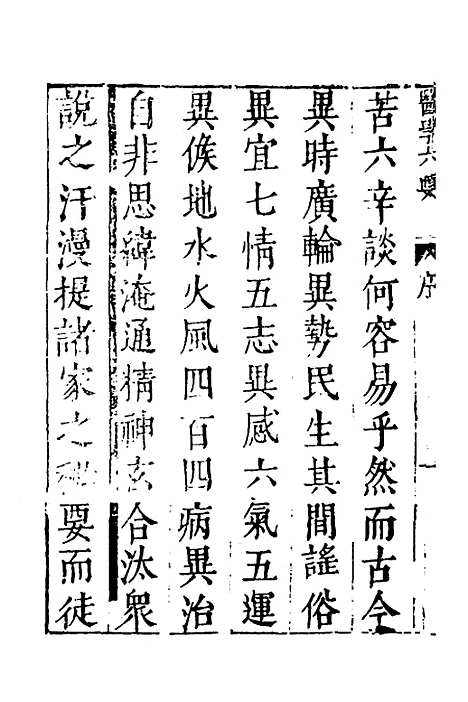 醫學六要 序 一
苦六辛談何容易乎然而古今
異時廣輪異勢民生其間謠俗
異宜七情五志異感六氣五運
異候地水火風四百四病異治
自非思緯淹通精神玄合汰衆
說之汗漫提諸家之要而徒